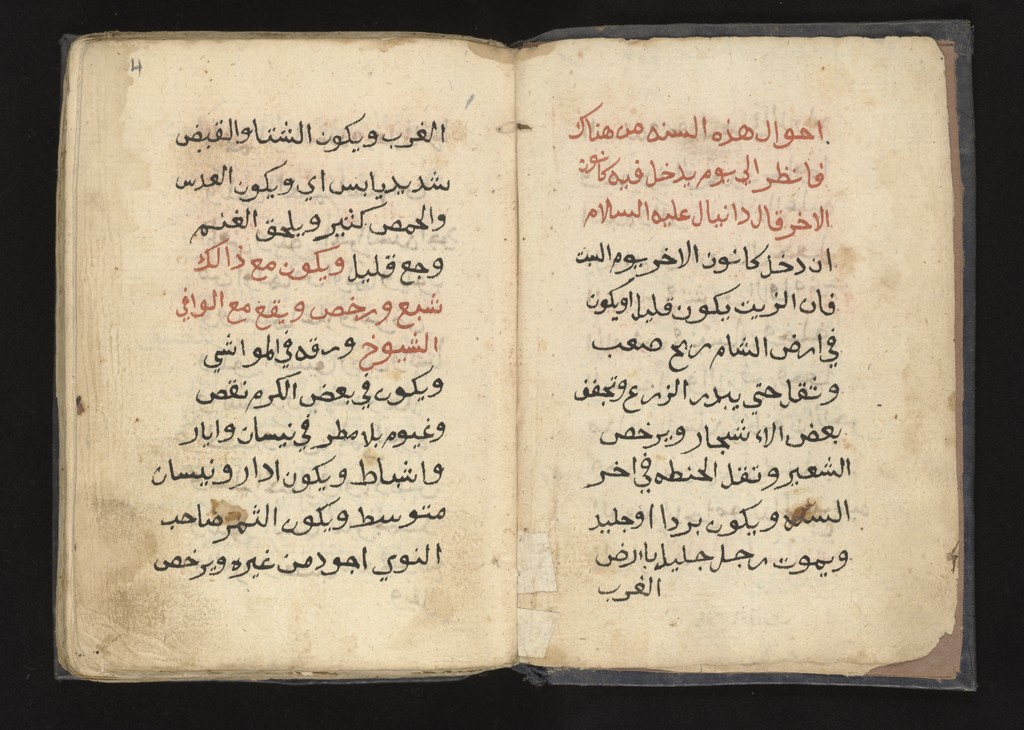 احوال هذه السنه من هناك
فانظر الي يوم يدخل فيه كانون
الاخر قال دانيال عليه السلام
ان دخل كانون الاخر يوم السبت
فان الزيت يكون قليل او يكون
في ارض الشام ريح صعب
وثقل حتي يبدر الزرع وتجفف
بعض الاشجار ويرخص
الشعير وتقل الحنطه في اخر
السنه ويكون بردا اوجليد
ويموت رجل جليل باارض
الغرب
4
الغرب ويكون الشتا والقبض
شديد يابس اي ويكون العدس
والحمص كثير ويلحق الغنم
وجع قليل ويكون مع ذالك
شبع ورخص ويقع مع الوافي
الشيوخ ورقه في المواشي
ويكون في بعض الكرم نقص
وغيوم بلا مطر في نيسان وايار
واشباط ويكون ادار ونيسان
متوسط ويكون الثمر صاحب
النوي اجود من غيره ويرخص